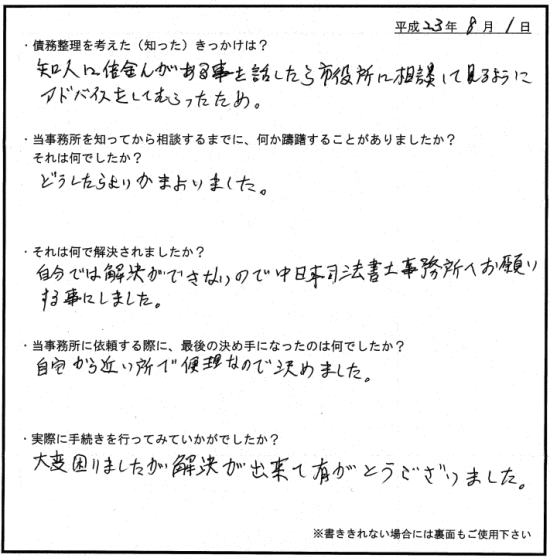 平成23年 8月 1日
・債務整理を考えた（知った）きっかけは？
知人に借金んがある事を話したら市役所に相談して見るように
アドバイスをしてもらったため。
・当事務所を知ってから相談するまでに、何か躊躇することがありましたか？
それは何でしたか？
どうしたらよいかまよいました。
・それは何で解決されましたか？
自分では解決ができないので中日本司法書士事務所へお願い
する事にしました。
・当事務所に依頼する際に、最後の決め手になったのは何でしたか？
自宅から近い所で便理なので決めました。
・実際に手続きを行ってみていかがでしたか？
大変困りましたが解決が出来て有がとうございました。
※書ききれない場合には裏面もご使用下さい